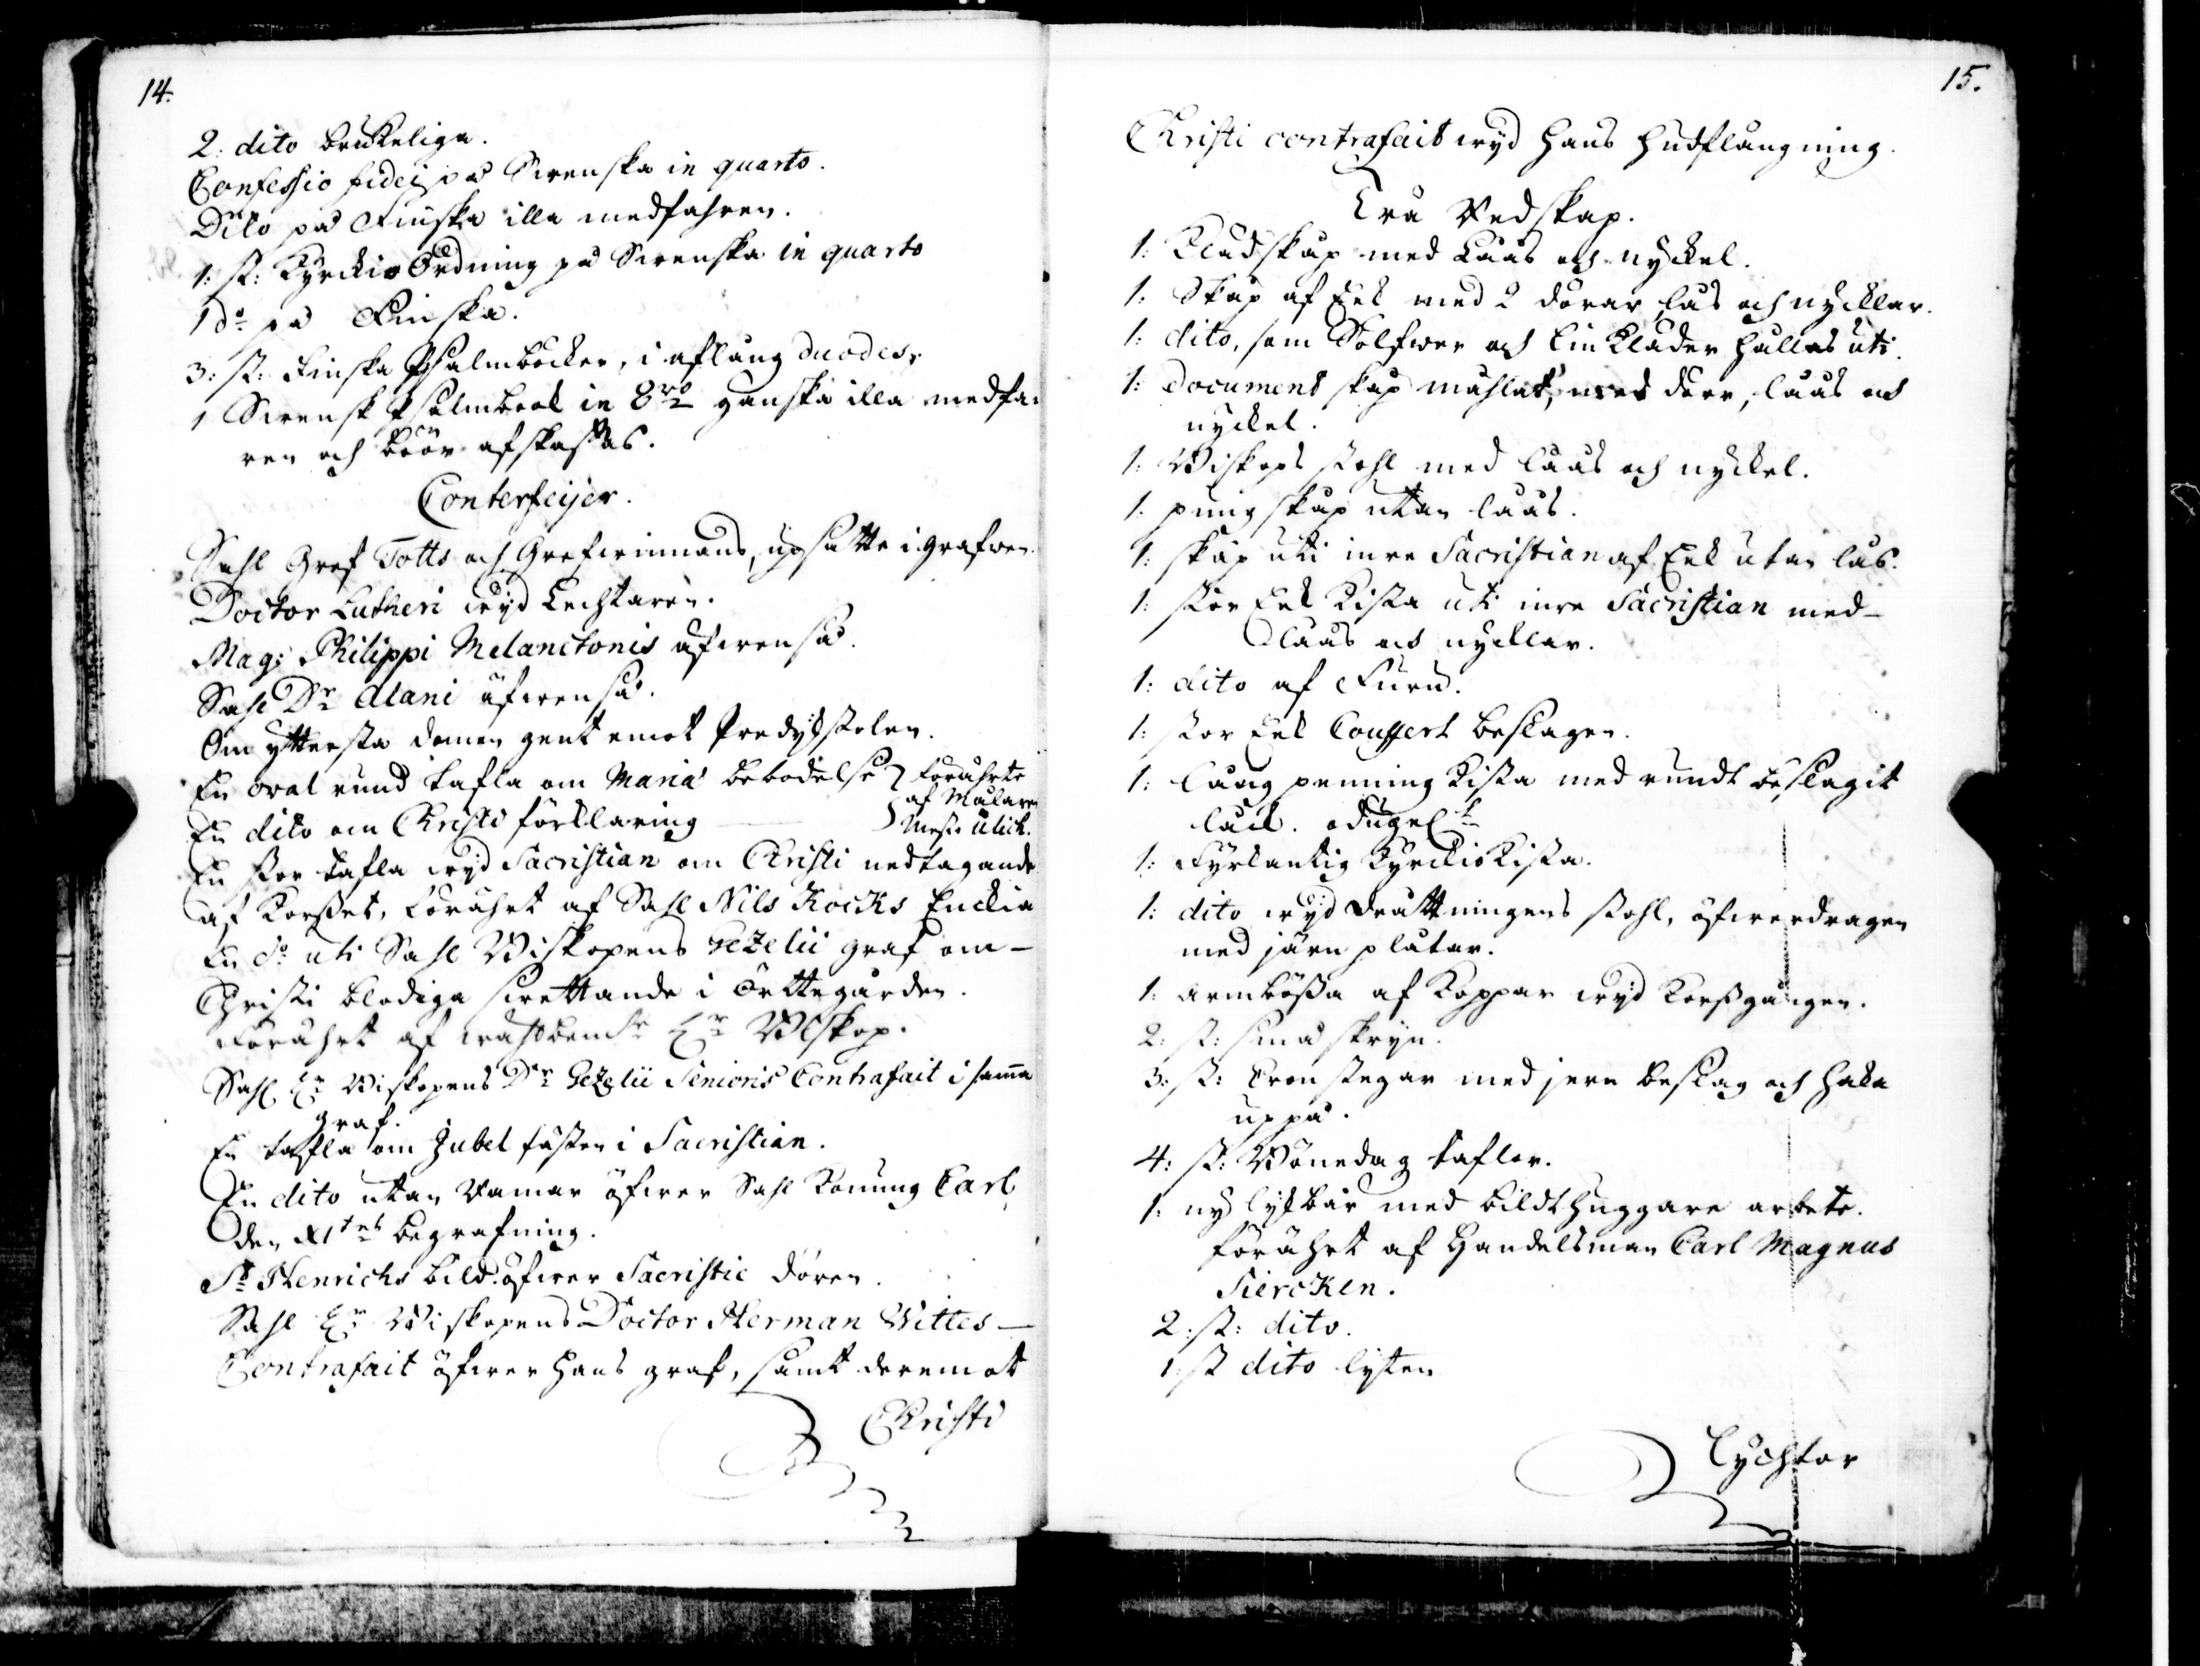 14.
2: dito brukelige.
Confessio fidei på Swenska in quarto.
Dito på Finska illa medfahren.
1: st: Kyrckio Ordning på Swenska in quarto
1 do på Finska.
3: st: Finska Psalmböcker, i aflång duodes,
1 Swensk Psalmbook in 8vo ganska illa medfa-
ren och böör afskaffas.
Conterfeijer.
Sahl Gref Totts och Grefwinnans, upsatte i grafwen.
Doctor Lutheri wyd Lechtaren.
Mag: Philippi Melanctonis äfwenså.
Sahl Dr Alani äfwenså.
Om yttersta domen gent emot Predykstolen.
En oval rund tafla om Mariæ bebodelse
En dito om Christi förklaring
förährte
af Målare
Mest: Ulich.
En stor tafla wyd Sacristian om Christi nedtagande
af Korsset, förährt af Sahl Nils Kocks Enckia
En do uti Sahl Biskopens Gezelii graf om
Christi blodiga swettande i Örttegården.
Förährt af wahlbemte Hr Biskop.
Sahl Hr Biskopens Dr Gezelii Senioris Contrafait i samma
graf.
En tafla om Jubel fästen i Sacristian.
En dito utan Ramar öfwer Sahl Konung Carl
den XItes begrafning.
St Henrichs bild öfwer Sacristie dören.
Sahl Hr Biskopens Doctor Herman Wittes
Contrafait öfwer hans graf, samt deremot
Christi
15.
Christi contrafait wyd hans hudflängning.
Trä Redskap.
1: Klädskåp med Låås och nyckel.
1: Skåp af Eek med 2 dörar, lås och nycklar.
1: dito, som Solfwer och Linkläder hålles uti.
1: document skåp måhlat, med döör, låås och
nyckel.
1: Biskops stohl med låås och nyckel.
1: pung skåp utan låås.
1: skåp uti inre Sacristian af Eek utan lås.
1: stor Eek Kista uti inre Sacristian med
låås och nycklar.
1: dito af Furu.
1: stor Eek Couffert beslagen.
1: lång penning Kista med rundt beslagit
låck. odugel:
1: Fyrkantig Kyrckiokista.
1: dito wyd Drättningens stohl, öfwerdragen
med järn plåtar.
1: armbössa af Koppar wyd Korssgången.
2: st: små skryn.
3: st: Trenstegar med jern beslag och haka
uppå.
4: st: Bönedag taflor.
1: ny lykbår med bildthuggare arbete.
förährt af Handelsman Carl Magnus
Siercken.
2: st: dito.
1: st dito lyten
Lychtor